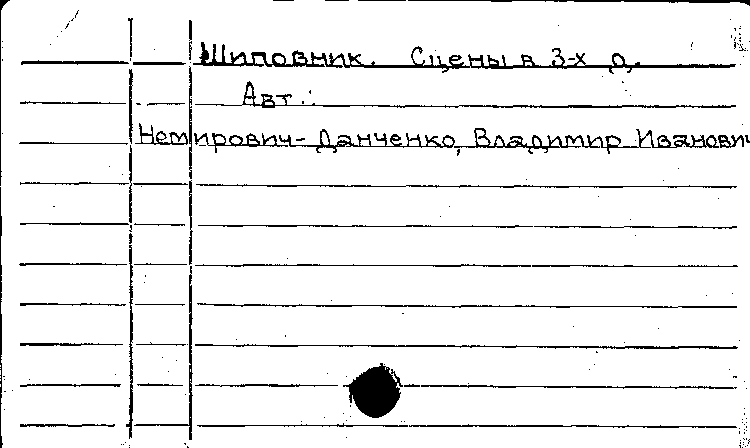 Шиповник. Сцены в 3-х д.
Авт.:
Немирович-Данченко, Владимир Иванович